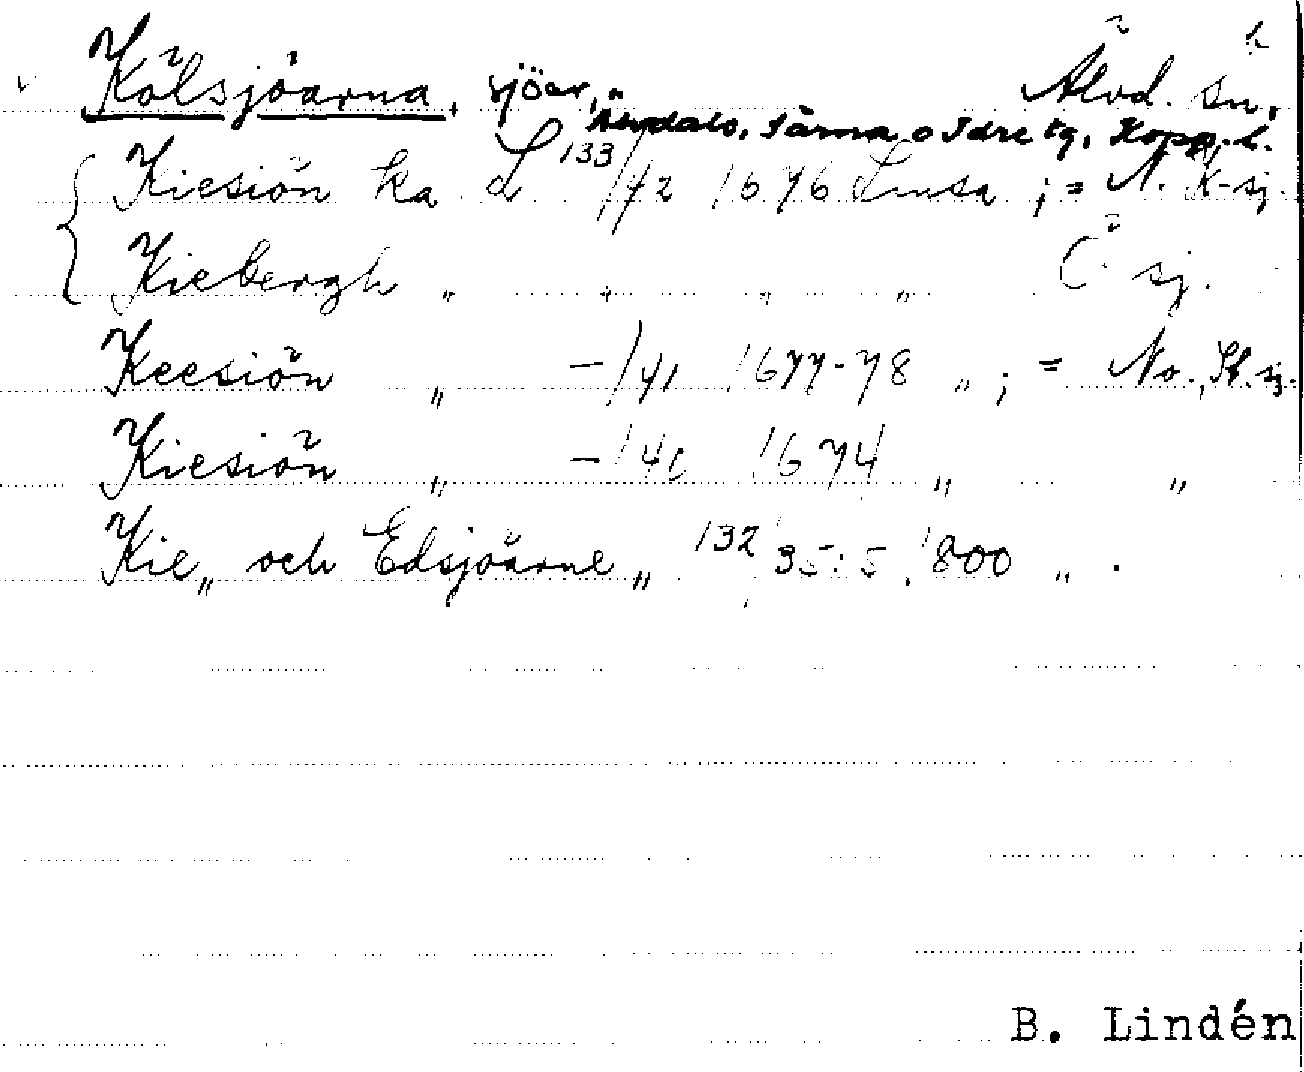 Kölsjöarna, sjöar, Älvd. sn.
Älvdals, Särna o Idre tg, Kopp. l.
Kiesiön ka L 133/42 1676 Lmsa ; = N. K-sj.
Kiebergh " " " " Ö sj.
Keesiön " -/41 1677-78 " ; = No. K-sj.
Kiesiön " -/40 1674 " "
Kie„ och Edsjöarne „ 132 35:5 1800 " .
B. Lindén